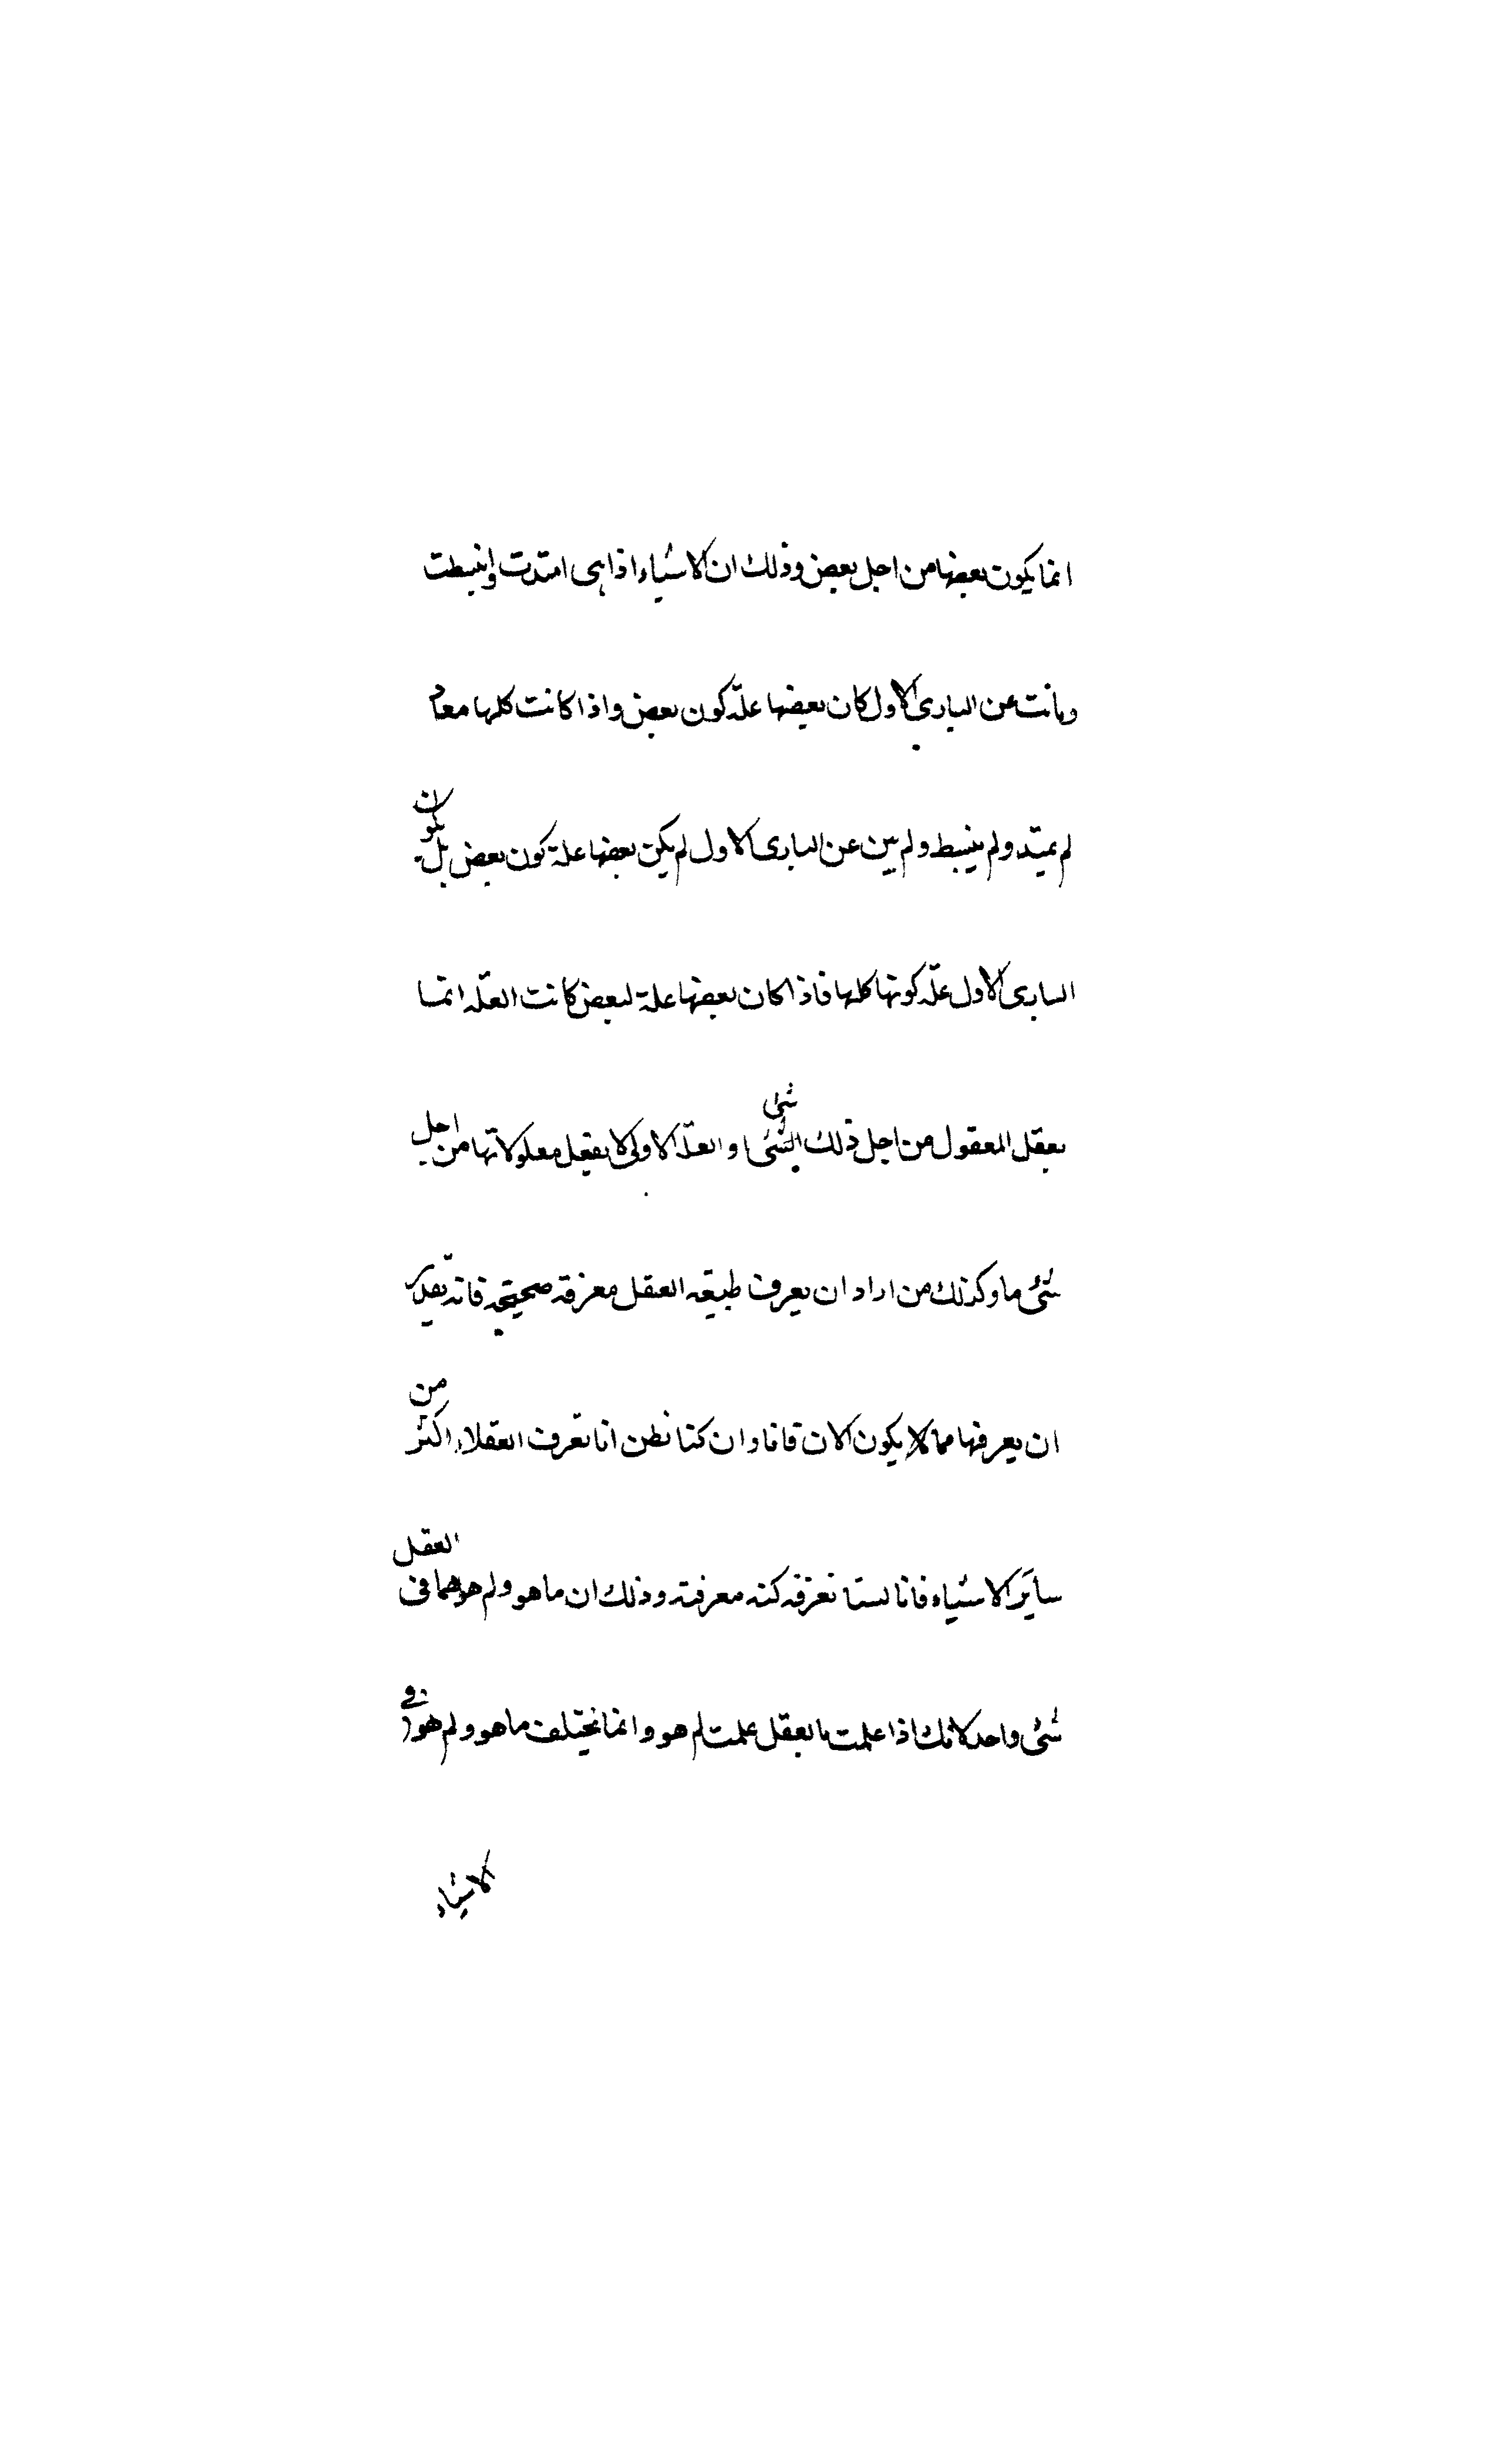 انما يكون بعضها من اجل بعض وذلك ان الاشياء اذا هى امتدت وانبسطت
وبانت عن البارى الاول كان بعضها علة كون بعض واذا كانت كلها معا و
لم يمتد ولم ينبسط ولم يبن عن البارى الاول لم يكن بعضها علة كون بعض بل يكون
البارى الاول علة كونها كلها فاذا كان بعضها علة لبعض كانت العلة انما
يعقل المعقول من اجل ذلك الشئ شئ والعلة الاولى لا يفعل معلولاتها من اجل
شئ ما وكذلك من اراد ان يعرف طبيعة العقل معرفة صحيحة فانه يقدر
ان يعرفها مما لا يكون الان فانا وان كنا نظن انا نعرف العقلاء اكثر من
ساير الاشياء فانا لسنا نعرفه كنه معرفته وذلك ان ما هو ولم هو هما فى العقل
شئ واحد لانك اذا علمت ما العقل علمت لم هو وانما يختلف ما هو ولم هو فى
الاشياء